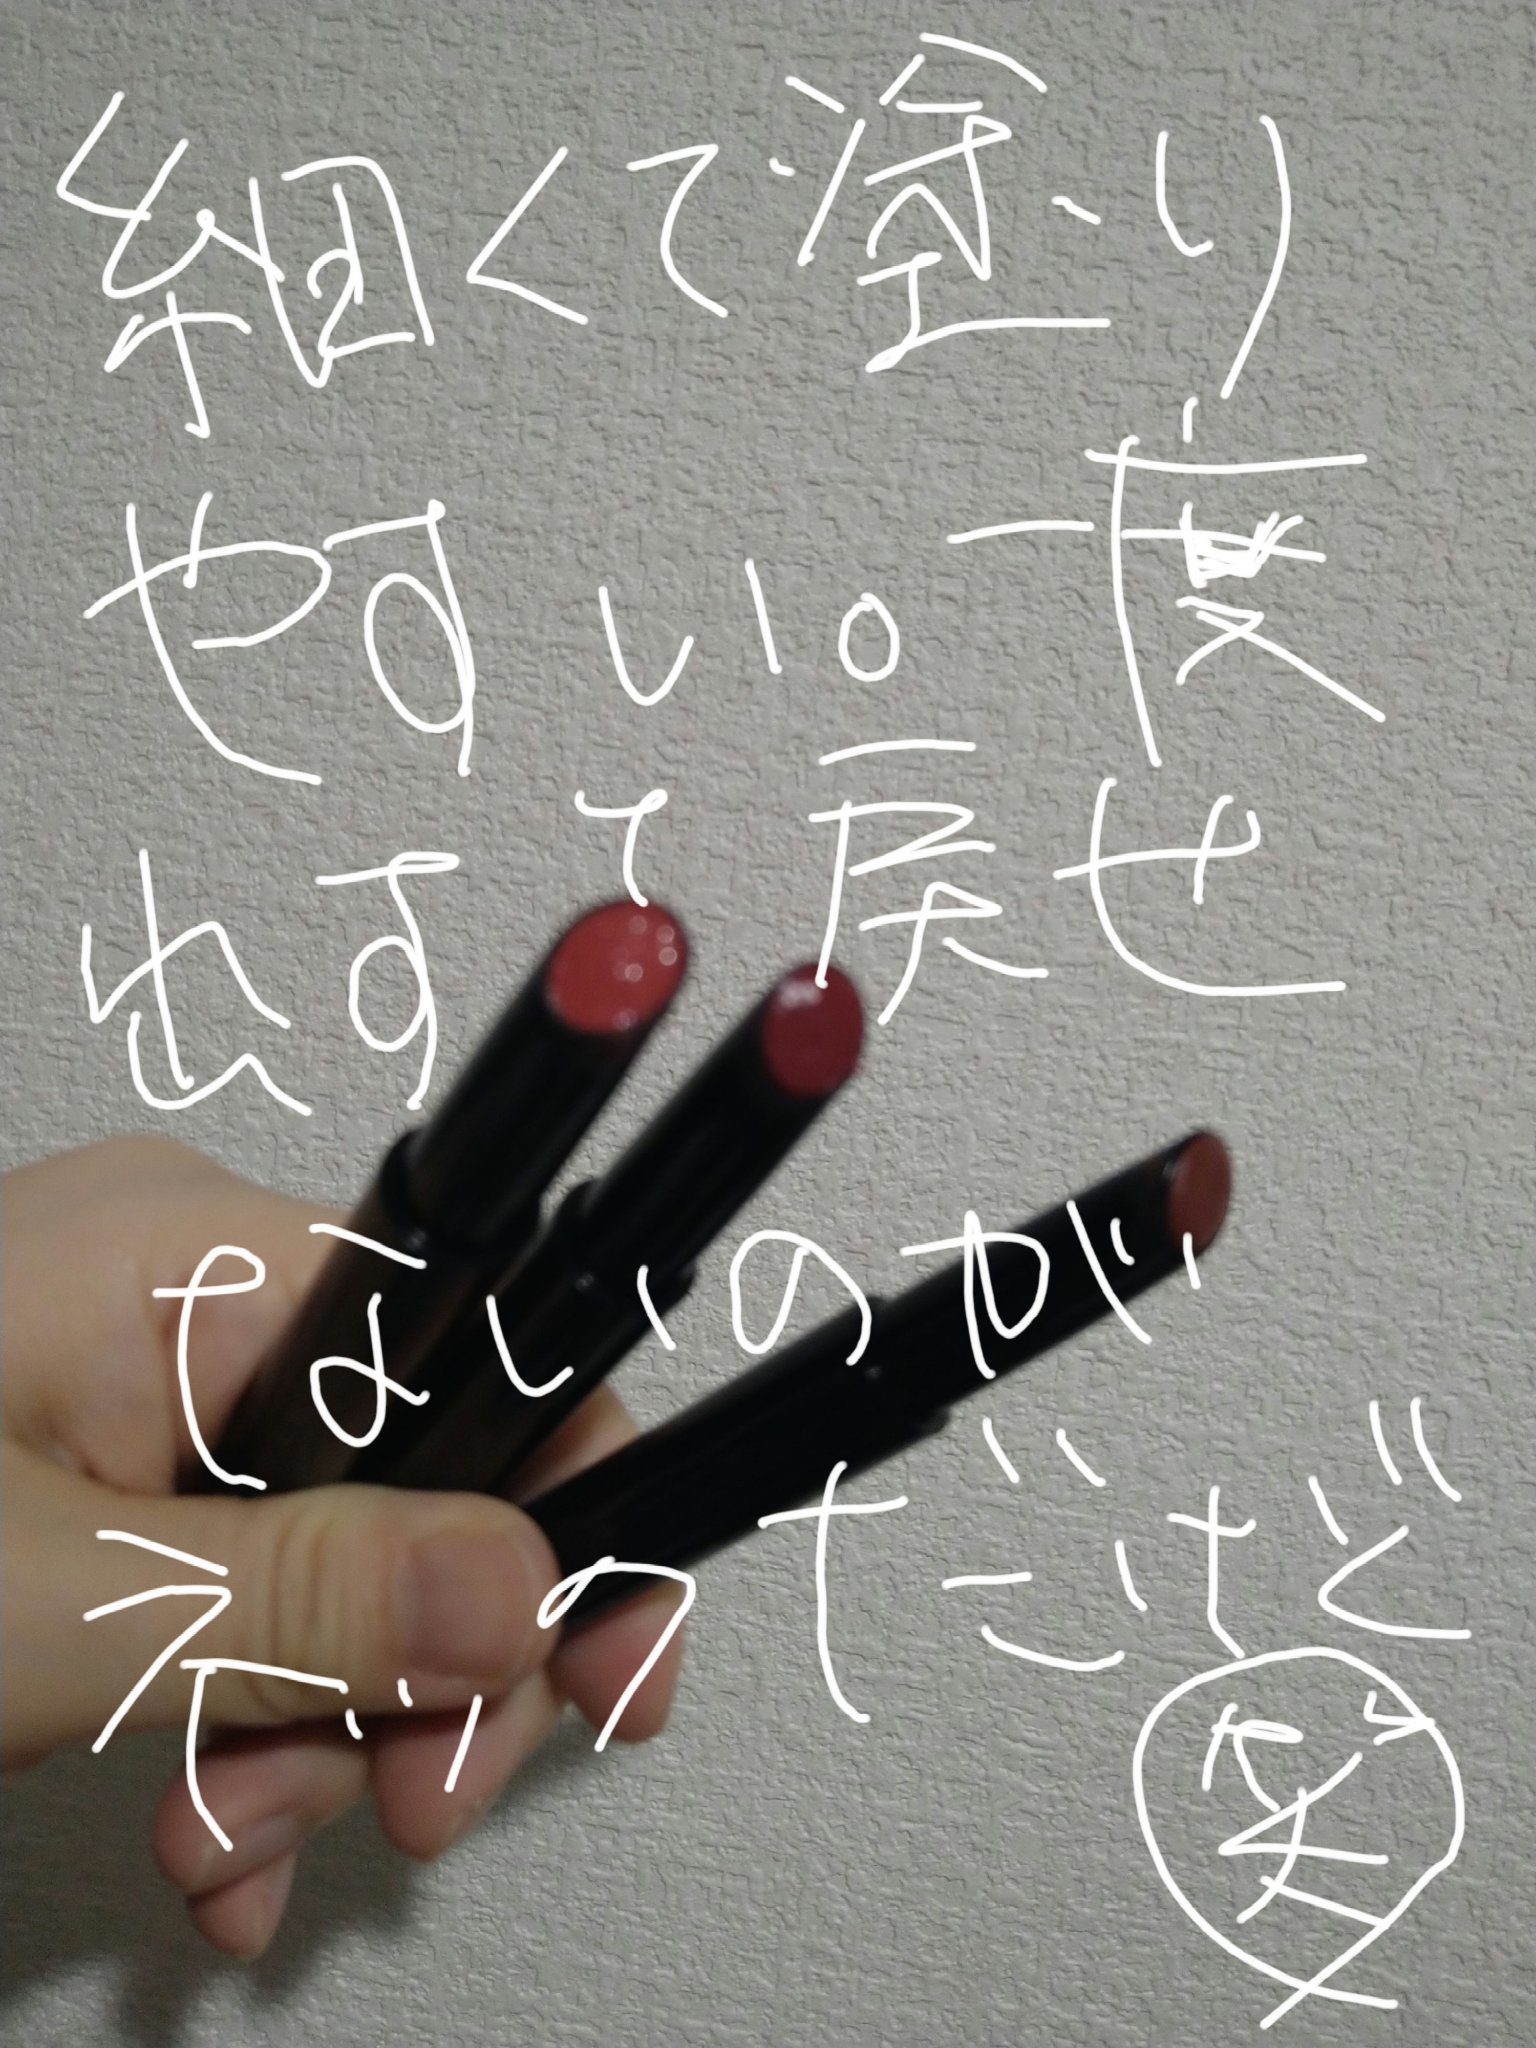 細くて塗り
やすい。一度
出すて戻せ
ないのが
ネックだけど
笑